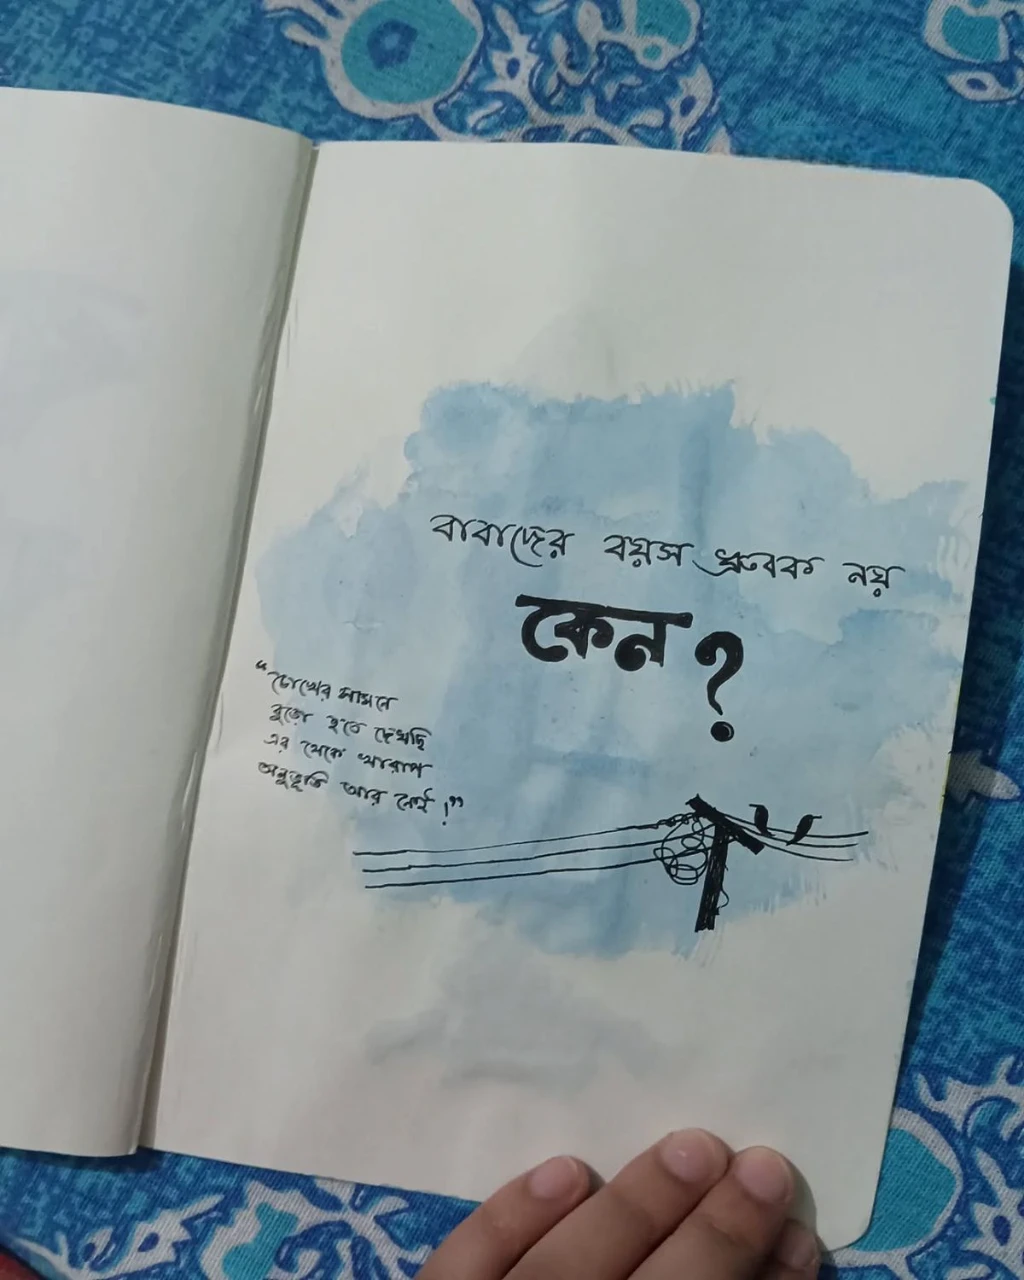 বাবাদের বয়স ধ্রুবক নয়
কেন?
“চোখের সামনে
বুড়ো হতে দেখছি
এর থেকে খারাপ
অনুভূতি আর নেই!”